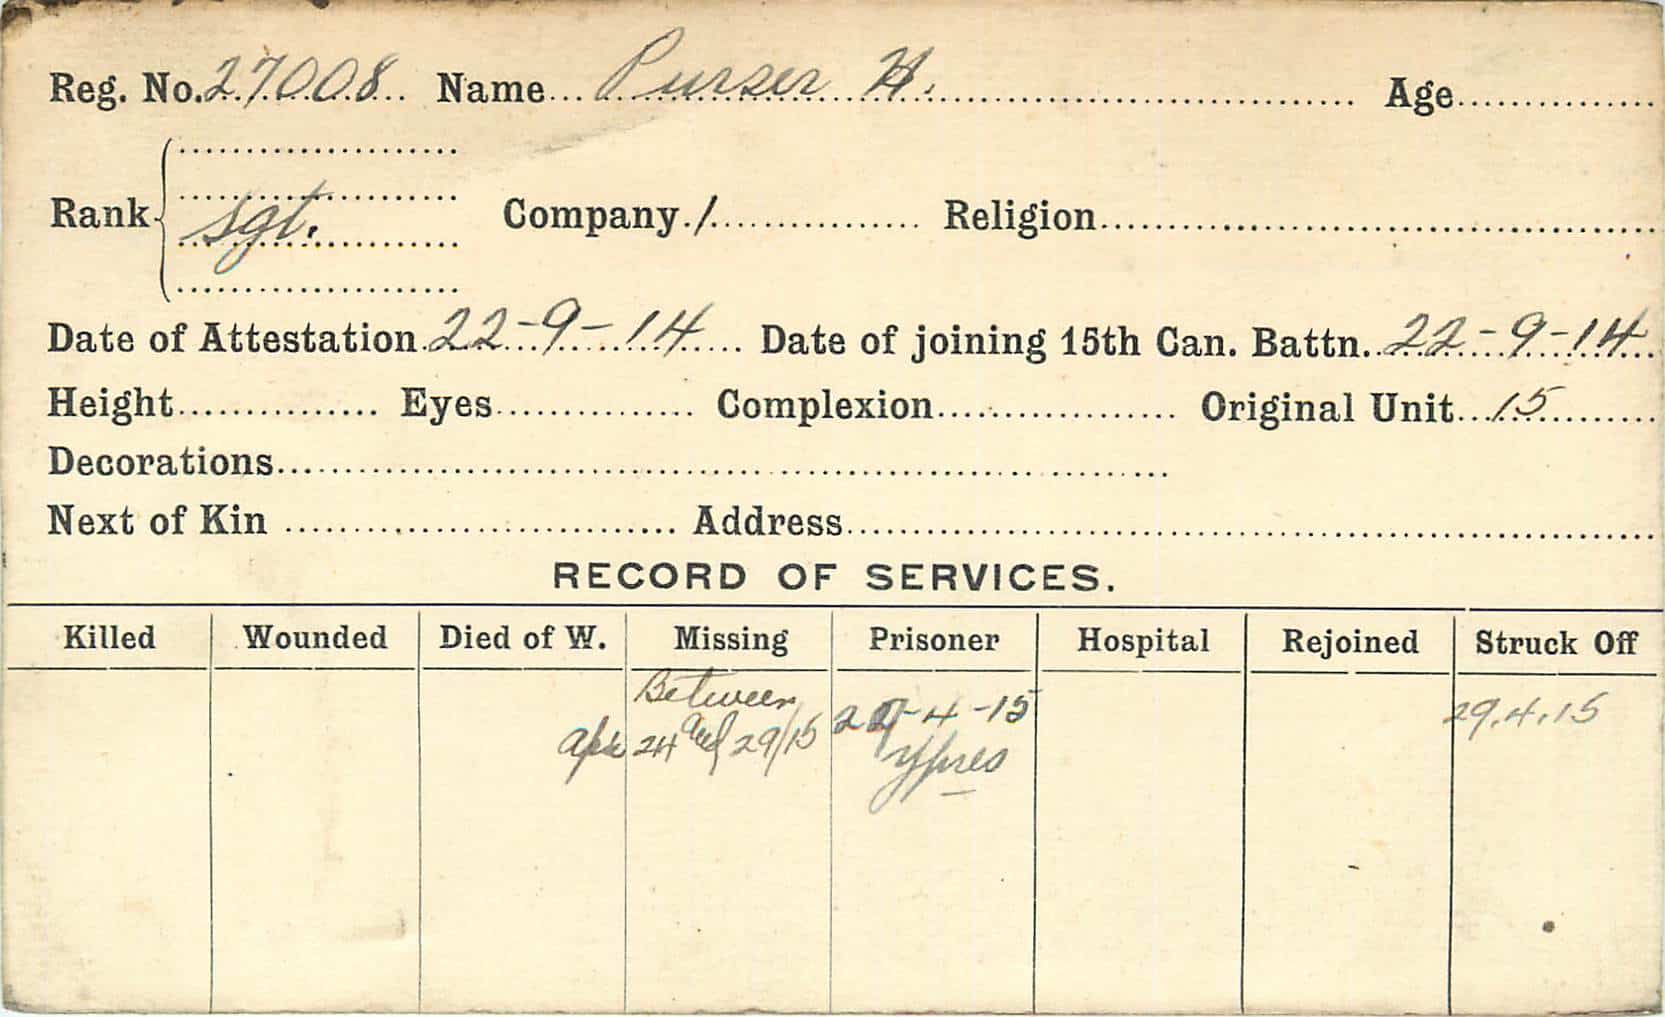 Reg. No. 27008 Name Purser H. Age
Rank Sgt. Company 1 Religion
Date of Attestation 22-9-14 Date of joining 15th Can. Battn. 22-9-14
Height Eyes Complexion Original Unit 15
Decorations
Next of Kin Address
RECORD OF SERVICES.
Killed Wounded Died of W. Missing Prisoner Hospital Rejoined Struck Off
Between 22-4-15 29.4.15
24 and 29/15 Ypres